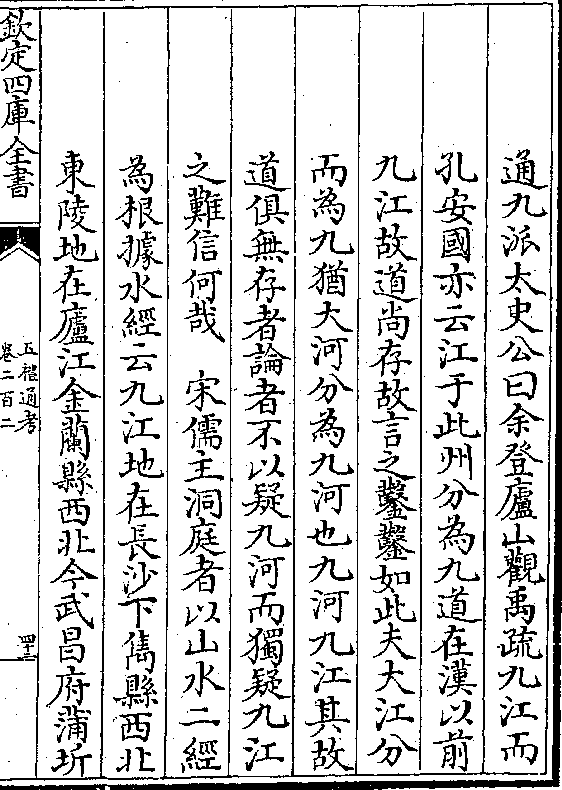 通九派太史公曰余登廬山觀禹疏九江而
孔安國亦云江于此州分為九道在漢以前
九江故道尚存故言之鑿鑿如此夫大江分
而為九猶大河分為九河也九河九江其故
道俱無存者論者不以疑九河而獨疑九江
之難信何哉　宋儒主洞庭者以山水二經
為根據水經云九江地在長沙下雋縣西北
東陵地在廬江金蘭縣西北今武昌府蒲圻
欽定四庫全書
五禮通考
卷二百二
四十三